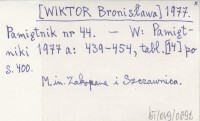 [WIKTOR Bronisława] 1977.
Pamiętnik nr 44. — W: Pamięt-
niki 1977 a: 439-454, tabl. [14] po
s. 400.
M.in. Zakopane i Szczawnica.